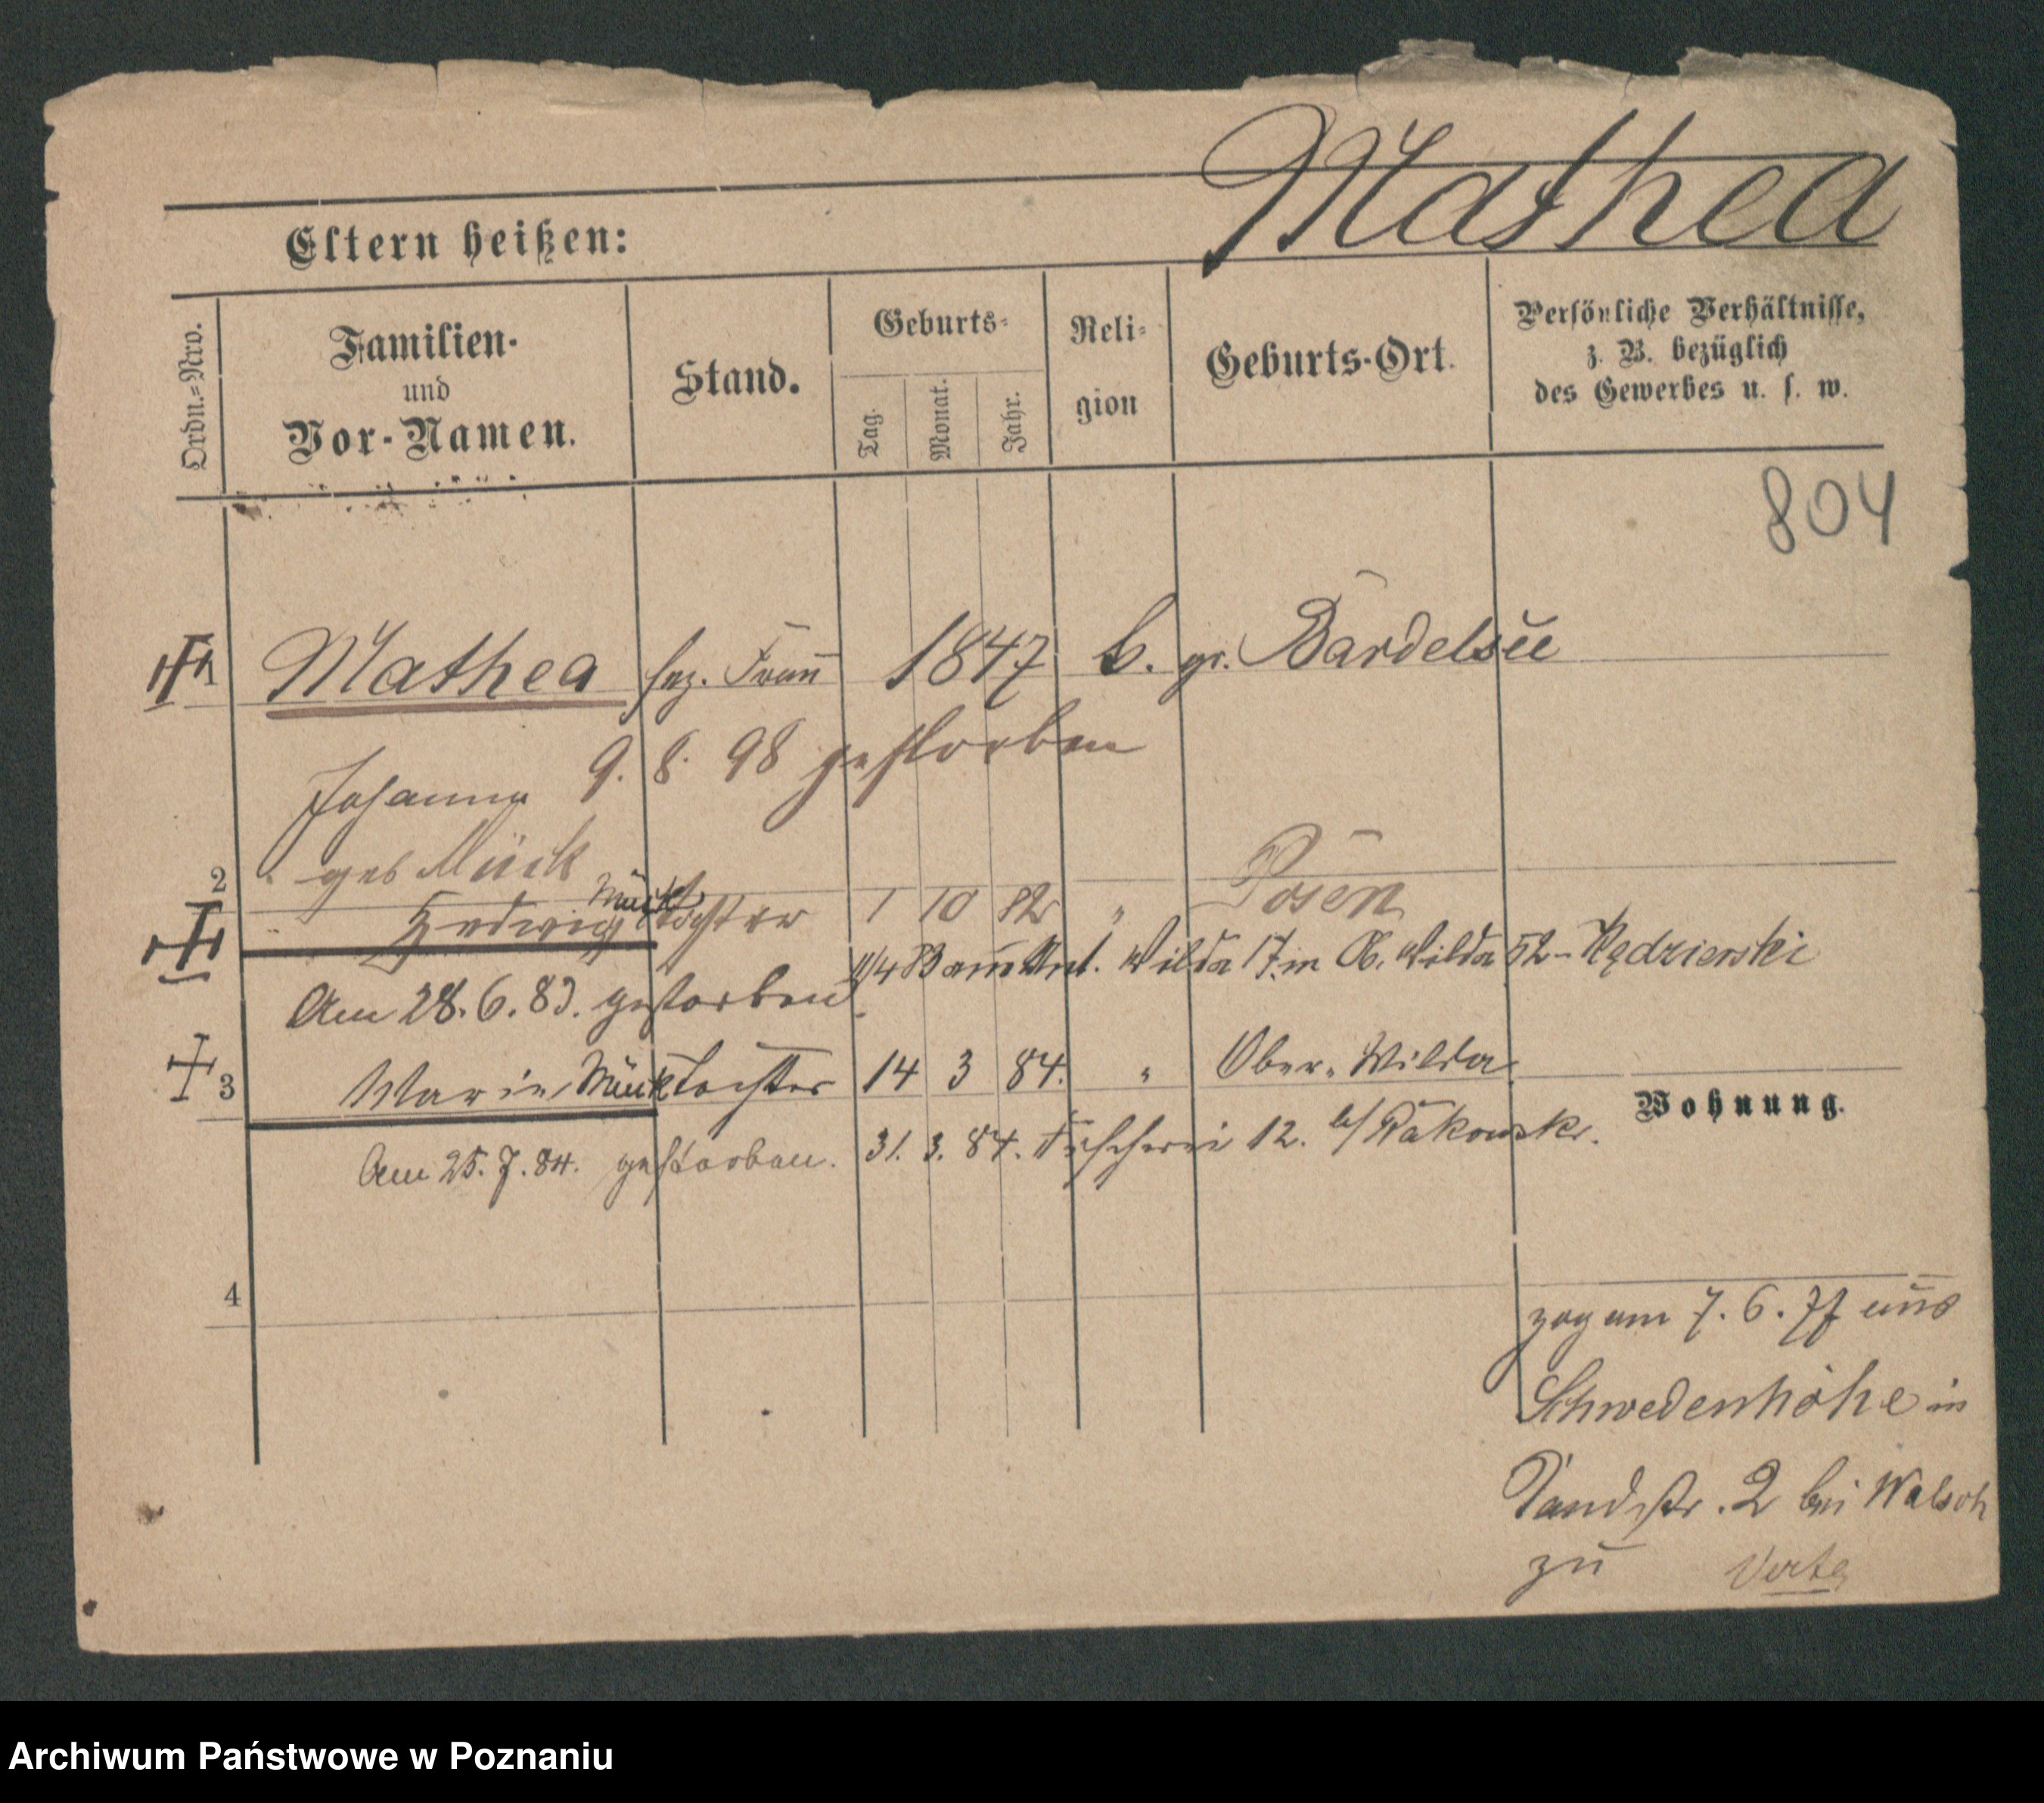 Mathea
Eltern heißen:
Ordn.=Nro.
Familien-
und
Vor-Namen.
Stand.
Geburts-
Tag.
Monat.
Jahr.
Reli-
gion
Geburts-Ort.
Persönliche Verhältnisse,
z. B. bezüglich
des Gewerbes u. s. w.
804
Mathea sep. Frau 1847 k. gr. Bardelsee
9. 8. 98 gestorben
Johanna
geb Mück
2
Hedwig Mück Tochter 1 10 82 " Posen
11/4 83 aus Unt. Wilda 17. in O. Wilda 52 - Kędzierski
Am 28. 6. 83. gestorben
3 Marie Mück Tochter 14 3 84. " Ober-Wilda
Wohnung.
Am 25. 7. 84. gestorben. 31. 3. 84. Fischerei 12. b/ Rakowski.
4
zog am 7. 6. 77 aus
Schwedenhöhe in
Sandstr. 2 bei Walsch
zu Verte